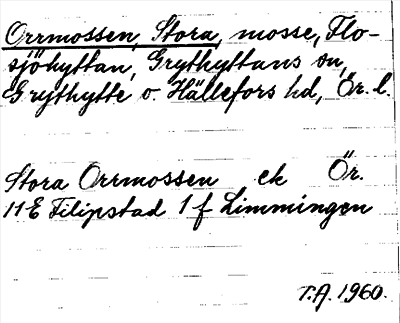 Orrmossen, Stora, mosse, Flo-
sjöhyttan, Grythyttans sn,
Grythytte o. Hällefors hd, Ör. l.
Stora Orrmossen ek Ör.
11E Filipstad 1 f Limmingen
T.A. 1960.